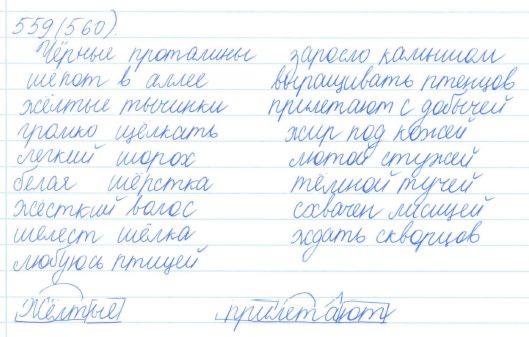 559(560).
Чёрные проталины
шёпот в аллее
жёлтые тычинки
громко щёлкать
легкий шорох
белая шёрстка
жёсткий волос
шелест шёлка
любуюсь птицей
заросло камышом
выращивать птенцов
прилетают с добычей
жир под кожей
лютой стужей
тёмной тучей
схвачен лисицей
ждать скворцов
жёлтые прилетают